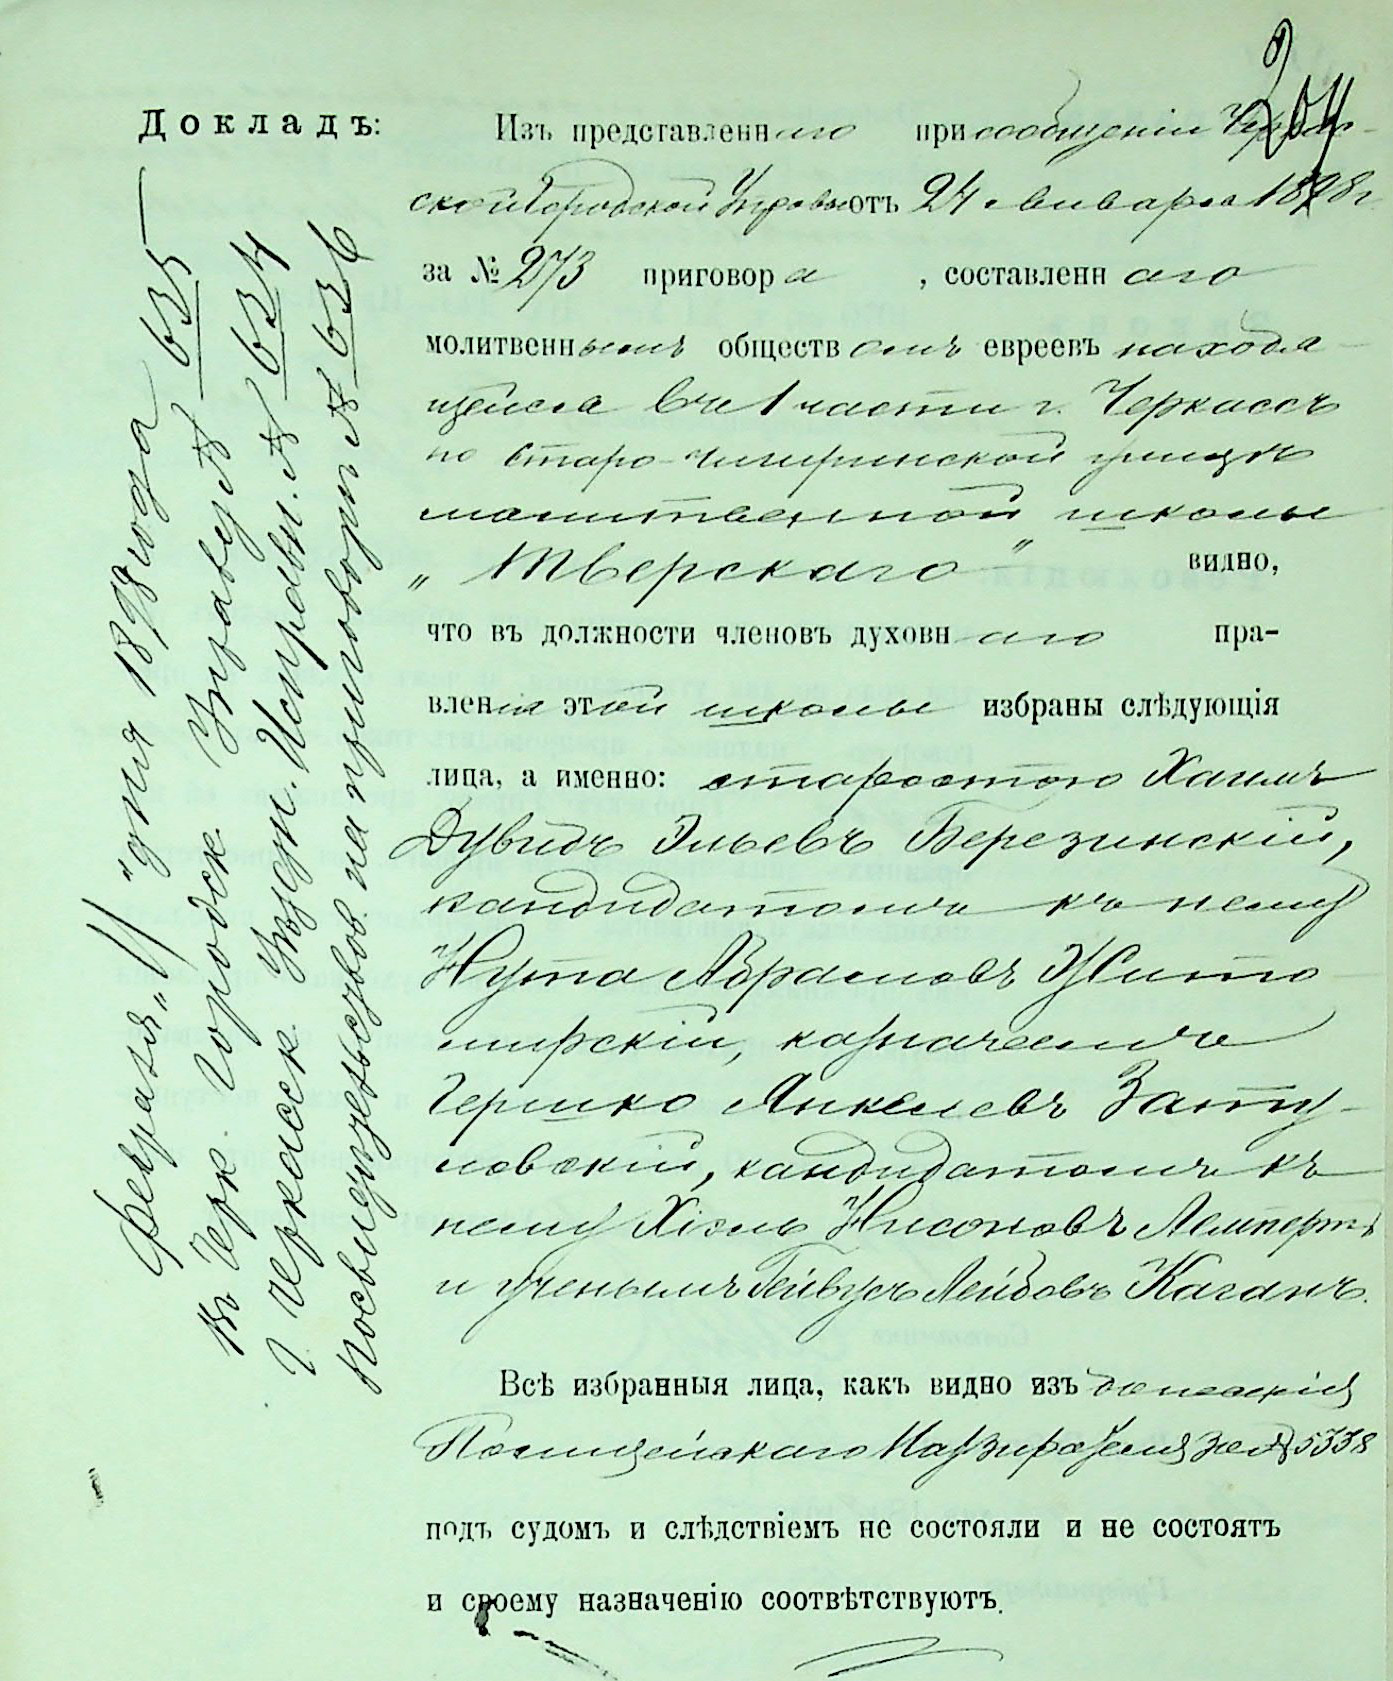 204
Докладъ:
Изъ представленнаго при сообщеніи Черкас-
ской Городской Управы отъ 24 января 1898 г.
за № 273 приговора, составленнаго
молитвеннымъ обществомъ евреевъ находя-
щейся въ 1 части г. Черкассъ
по Старо-Чигиринской улицѣ
молитвенной школы
„Тверскаго" видно,
что въ должности членовъ духовнаго пра-
вленія этой школы избраны слѣдующія
лица, а именно: старостою Хаимъ
Дувидъ Эльевъ Березинскій,
кандидатомъ къ нему
Нута Абрамовъ Жито
мирскій, казначеемъ
Гершко Янкелевъ Зату
ловскій, кандидатомъ къ
нему Хіэль Нисоновъ Лемперть
и ученымъ Лейбовъ Каганъ.
Всѣ избранныя лица, какъ видно изъ донесенія
Полицейскаго Надзирателя за № 5338
подъ судомъ и слѣдствіемъ не состояли и не состоятъ
и своему назначенію соотвѣтствуютъ.
Февраля „4" дня 1898 года
въ Черк. Городск. Управу № 635
г. Черкасск. Уѣздн. Исправн. № 634
на приговори № 636